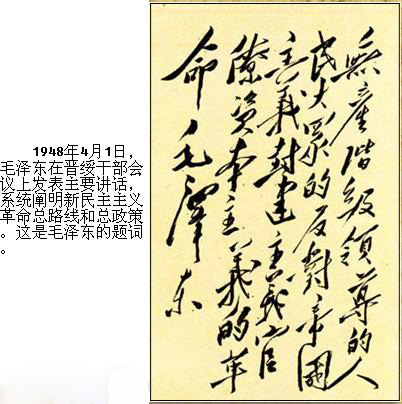 1948年4月1日，
毛泽东在晋绥干部会
议上发表主要讲话，
系统阐明新民主主义
革命总路线和总政策
。这是毛泽东的题词
。
無產階級領導的人
民大眾的反對帝國
主義封建主義官
僚資本主義的革
命 毛澤東